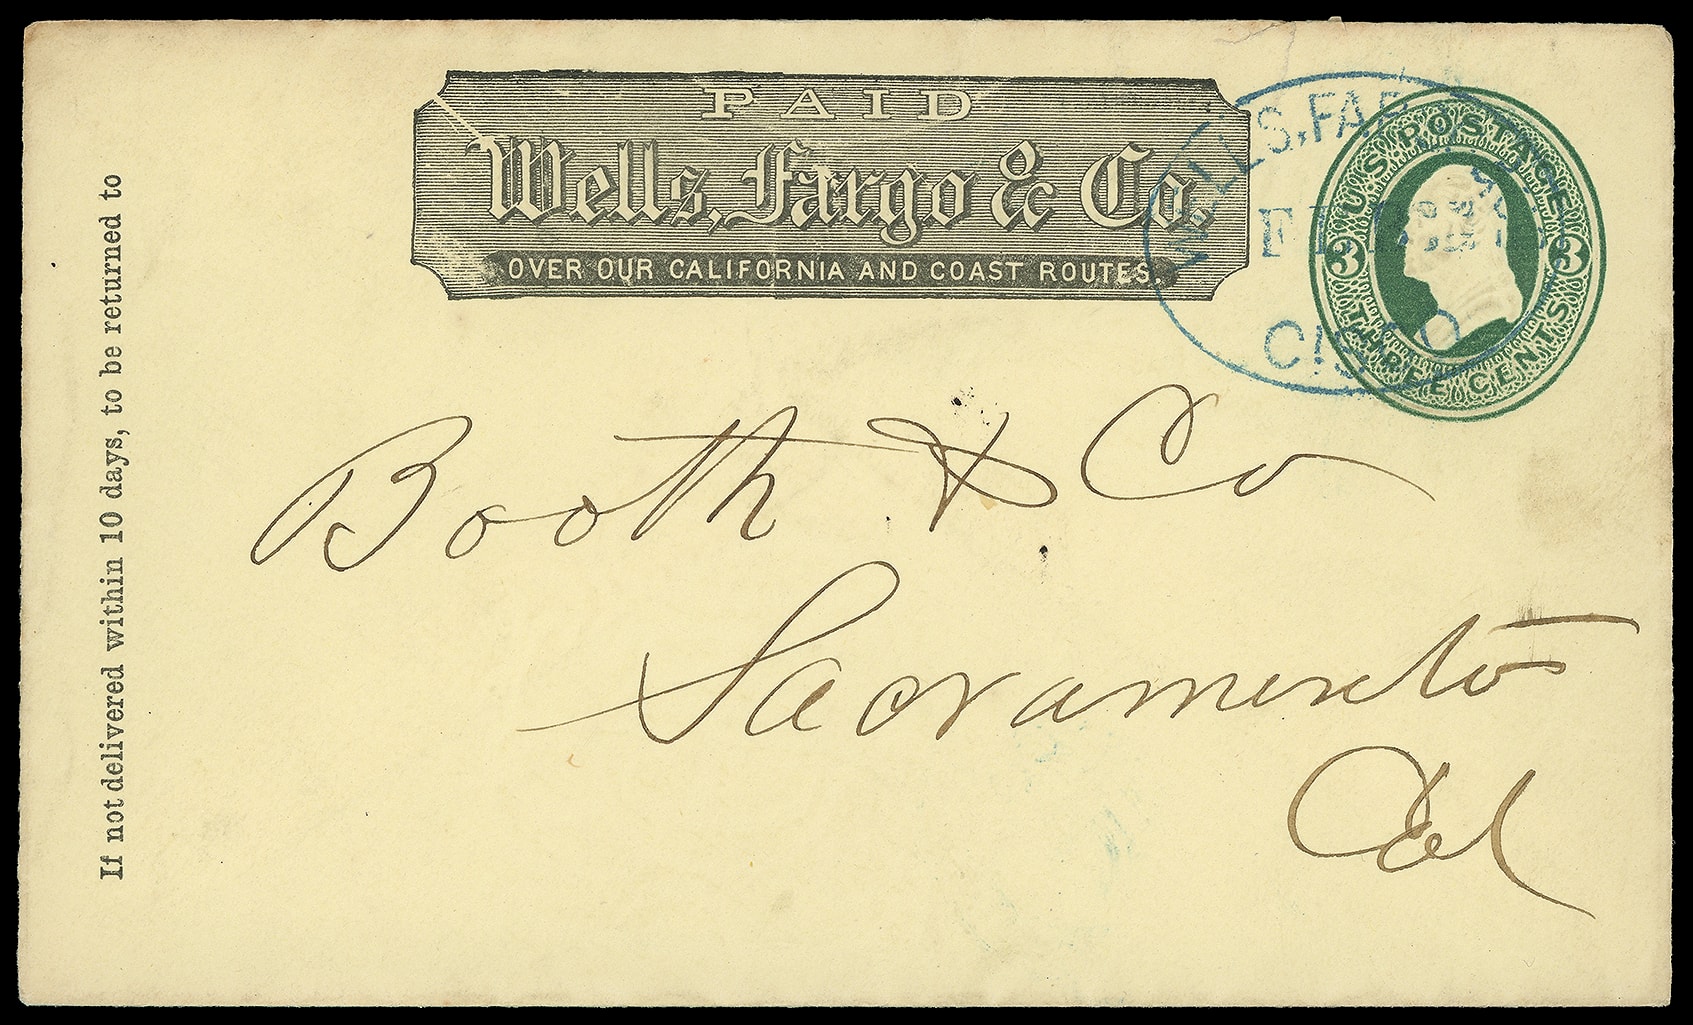 PAID
Wells, Fargo & Co.
OVER OUR CALIFORNIA AND COAST ROUTES.
WELLS, FAR
CISCO
U.S. POSTAGE
3 3
THREE CENTS
If not delivered within 10 days, to be returned to
Booth & Co
Sacramento
Cal